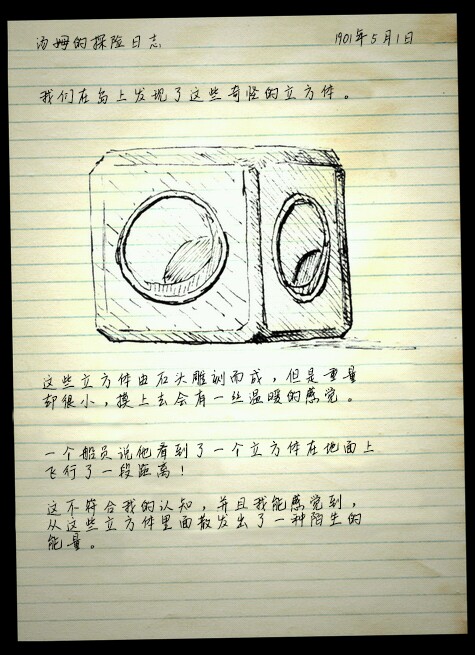 汤姆的探险日志
1901年5月1日
我们在岛上发现了这些奇怪的立方体。
这些立方体由石头雕刻而成，但是重量
却很小，摸上去会有一丝温暖的感觉。
一个船员说他看到了一个立方体在地面上
飞行了一段距离！
这不符合我的认知，并且我能感觉到，
从这些立方体里面散发出了一种陌生的
能量。